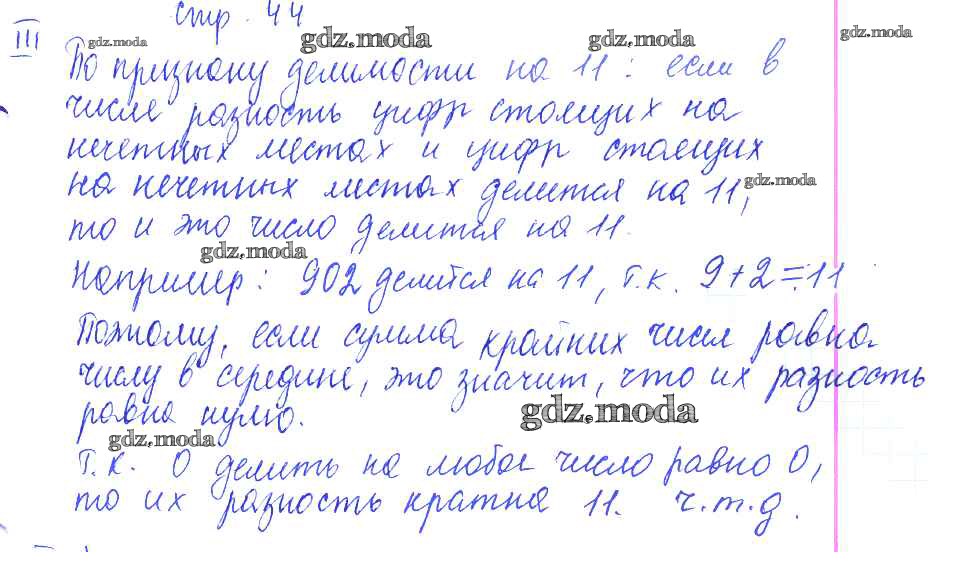 стр. 44
III
gdz.moda gdz.moda gdz.moda gdz.moda
По признаку делимости на 11: если в
числе разность цифр стоящих на
нечетных местах и цифр стоящих
на нечетных местах делится на 11, gdz.moda
то и это число делится на 11.
gdz.moda
Например: 902 делится на 11, т.к. 9+2=11
Поэтому, если сумма крайних чисел равна
числу в середине, это значит, что их разность
равна нулю. gdz.moda
gdz.moda
Т.к. 0 делить на любое число равно 0,
то их разность кратна 11. ч.т.д.